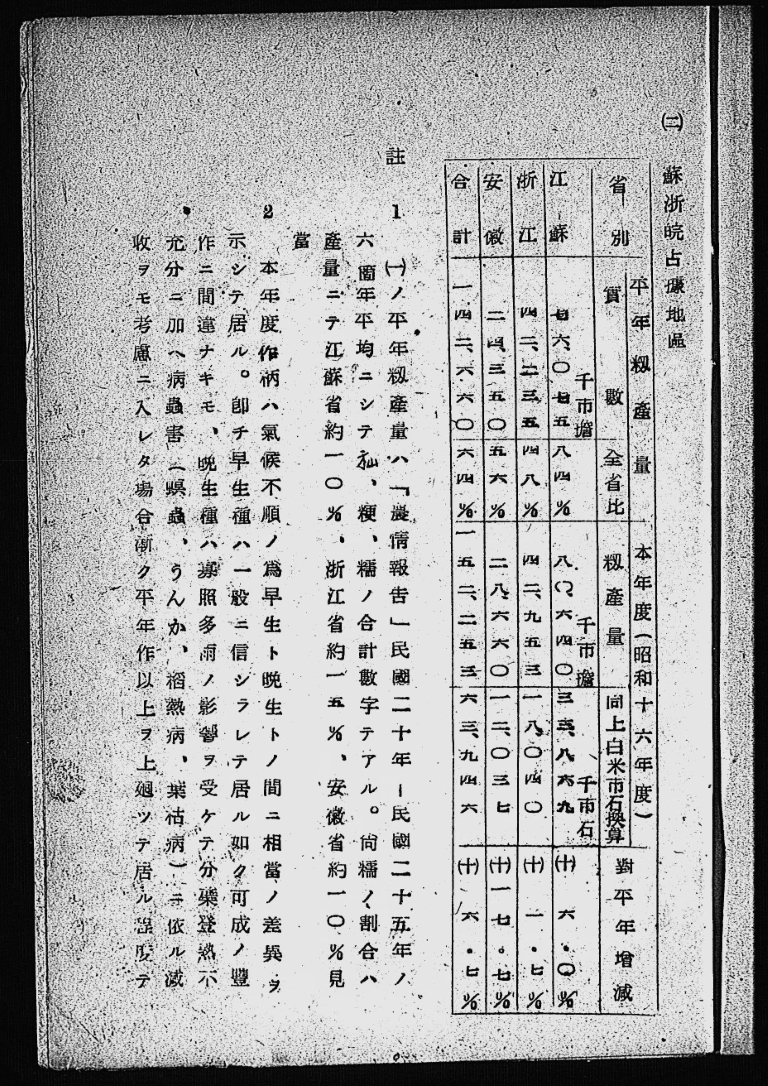 ㈡　蘇浙皖占據地區
省別　平年籾產量　本年度(昭和十六年度)　對平年增減
實數　全省比　籾產量　同上白米市石換算
千市擔　千市擔　千市石
江蘇　七六、〇七五　八四%　八〇、六四〇　三三、八六九　㈩　六・〇%
浙江　四二、二三五　四八%　四二、九五三　一八、〇四〇　㈩　一・七%
安徽　二四、三五〇　五六%　二八、六六〇　一二、〇三七　㈩　一七・七%
合計　一四二、六六〇　六四%　一五二、二五三　六三、九四六　㈩　六・七%
註　1　㈠ノ平年籾產量ハ「農情報告」民國二十年ー民國二十五年ノ
六箇年平均ニシテ秈、粳、糯ノ合計數字テアル。尙糯ノ割合ハ
產量ニテ江蘇省約一〇%、浙江省約一五%、安徽省約一〇%見
當
2　本年度作柄ハ氣候不順ノ爲早生ト晩生トノ間ニ相當ノ差異ヲ
示シテ居ル。卽チ早生種ハ一般ニ信シラレテ居ル如ク可成ノ豐
作ニ間違ナキモ、晩生種ハ寡照多雨ノ影響ヲ受ケテ分蘖登熟不
充分ニ加ヘ病蟲害(螟蟲、うんか、稻熱病、葉枯病)ニ依ル減
收ヲモ考慮ニ入レタ場合漸ク平年作以上ヲ上廻ツテ居ル程度テ